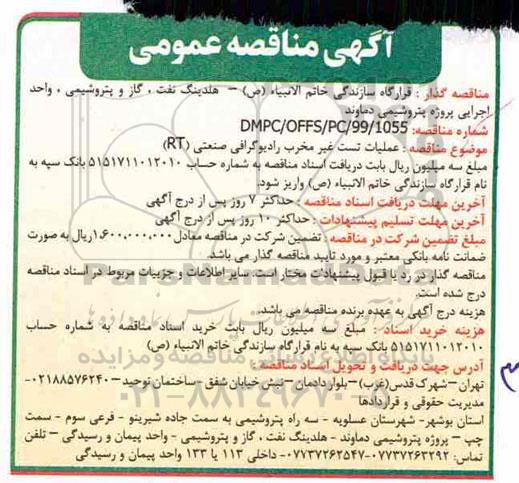 آگهی مناقصه عمومی
مناقصه گذار : قرارگاه سازندگی خاتم الانبیاء (ص) – هلدینگ نفت ، گاز و پتروشیمی ، واحد
اجرایی پروژه پتروشیمی دماوند
شماره مناقصه: DMPC/OFFS/PC/99/1055
موضوع مناقصه : عملیات تست غیر مخرب رادیوگرافی صنعتی (RT)
مبلغ سه میلیون ریال بابت دریافت اسناد مناقصه به شماره حساب ۵۱۵۱۷۱۱۰۱۲۰۱۰ بانک سپه به
نام قرارگاه سازندگی خاتم الانبیاء (ص) واریز شود.
آخرین مهلت دریافت اسناد مناقصه : حداکثر ۷ روز پس از درج آگهی
آخرین مهلت تسلیم پیشنهادات : حداکثر ۱۰ روز پس از درج آگهی
مبلغ تضمین شرکت در مناقصه : تضمین شرکت در مناقصه معادل ۱،۶۰۰،۰۰۰،۰۰۰ریال به صورت
ضمانت نامه بانکی معتبر و مورد تایید مناقصه گذار می باشد.
مناقصه گذار در رد یا قبول پیشنهادات مختار است. سایر اطلاعات و جزییات مربوط در اسناد مناقصه
درج شده است.
هزینه درج آگهی به عهده برنده مناقصه می باشد.
هزینه خرید اسناد : مبلغ سه میلیون ریال بابت خرید اسناد مناقصه به شماره حساب
۵۱۵۱۷۱۱۰۱۲۰۱۰ بانک سپه به نام قرارگاه سازندگی خاتم الانبیاء (ص)
آدرس جهت دریافت و تحویل اسناد مناقصه :
تهران–شهرک قدس(غرب)–بلوار دادمان–نبش خیابان شفق –ساختمان توحید–۰۲۱۸۸۵۷۶۲۴۰-
مدیریت حقوقی و قراردادها
استان بوشهر- شهرستان عسلویه - سه راه پتروشیمی به سمت جاده شیرینو - فرعی سوم - سمت
چپ – پروژه پتروشیمی دماوند - هلدینگ نفت ، گاز و پتروشیمی - واحد پیمان و رسیدگی – تلفن
تماس: ۰۷۷۳۷۲۶۳۲۹۲-۰۷۷۳۷۲۶۲۵۴۷- داخلی ۱۱۳ یا ۱۳۳ واحد پیمان و رسیدگی
ParsNamadData
پایگاه اطلاع رسانی مناقصه و مزایده
۰۲۱-۸۸۳۴۹۶۷۰